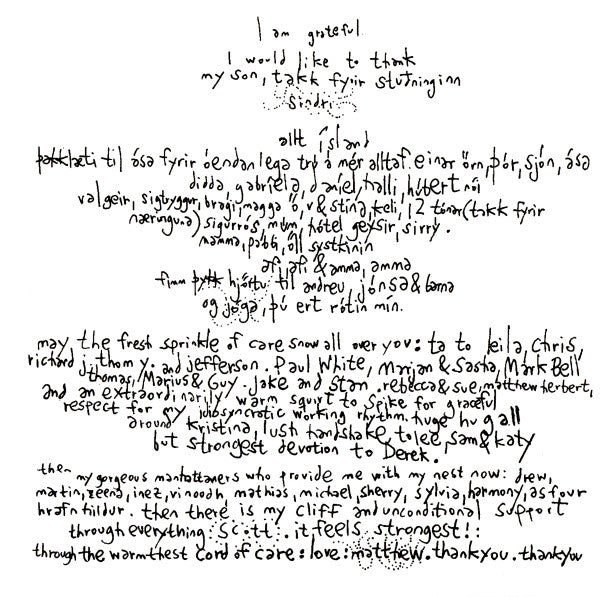 I am grateful
I would like to thank
my son, takk fyrir stuðninginn
sindri
allt ísland
þakklæti til ása fyrir óendanlega trú á mér alltaf. einar örn, þór, sjón, ása
didda, gabríela, daníel, halli, húbert nói
valgeir, sigtryggur, bragi, magga ö, v & stína, keli, 12 tónar (takk fyrir
næringuna) sigurrós, múm, hótel geysir, sirry.
mamma, pabbi, öll systkinin
afi, afi & amma, amma
fimm hjörtu til andreu, jónsa & barna
og jóga, þú ert rótin mín.
may, the fresh sprinkle of care snow all over you: ta to leila, chris,
richard j, thom y. and jefferson. Paul White, Marjan & Sasha, Mark Bell
thomas, Marius & Guy. Jake and Stan. rebecca & sue, matthew herbert,
and an extraordinarily warm squirt to spike for graceful
respect for my idiosyncratic working rhythm. huge hug all
around kristina, lush handshake to lee, sam & katy
but strongest devotion to Derek.
then my gorgeous manhattaners who provide me with my nest now: drew,
martin, zeena, inez, vinoodh, mathias, michael, sherry, sylvia, harmony, as four
hrafnhildur. then there is my cliff and unconditional support
through everything: scott. it feels strongest!:
through the warmthest cord of care: love: matthew. thankyou. thankyou